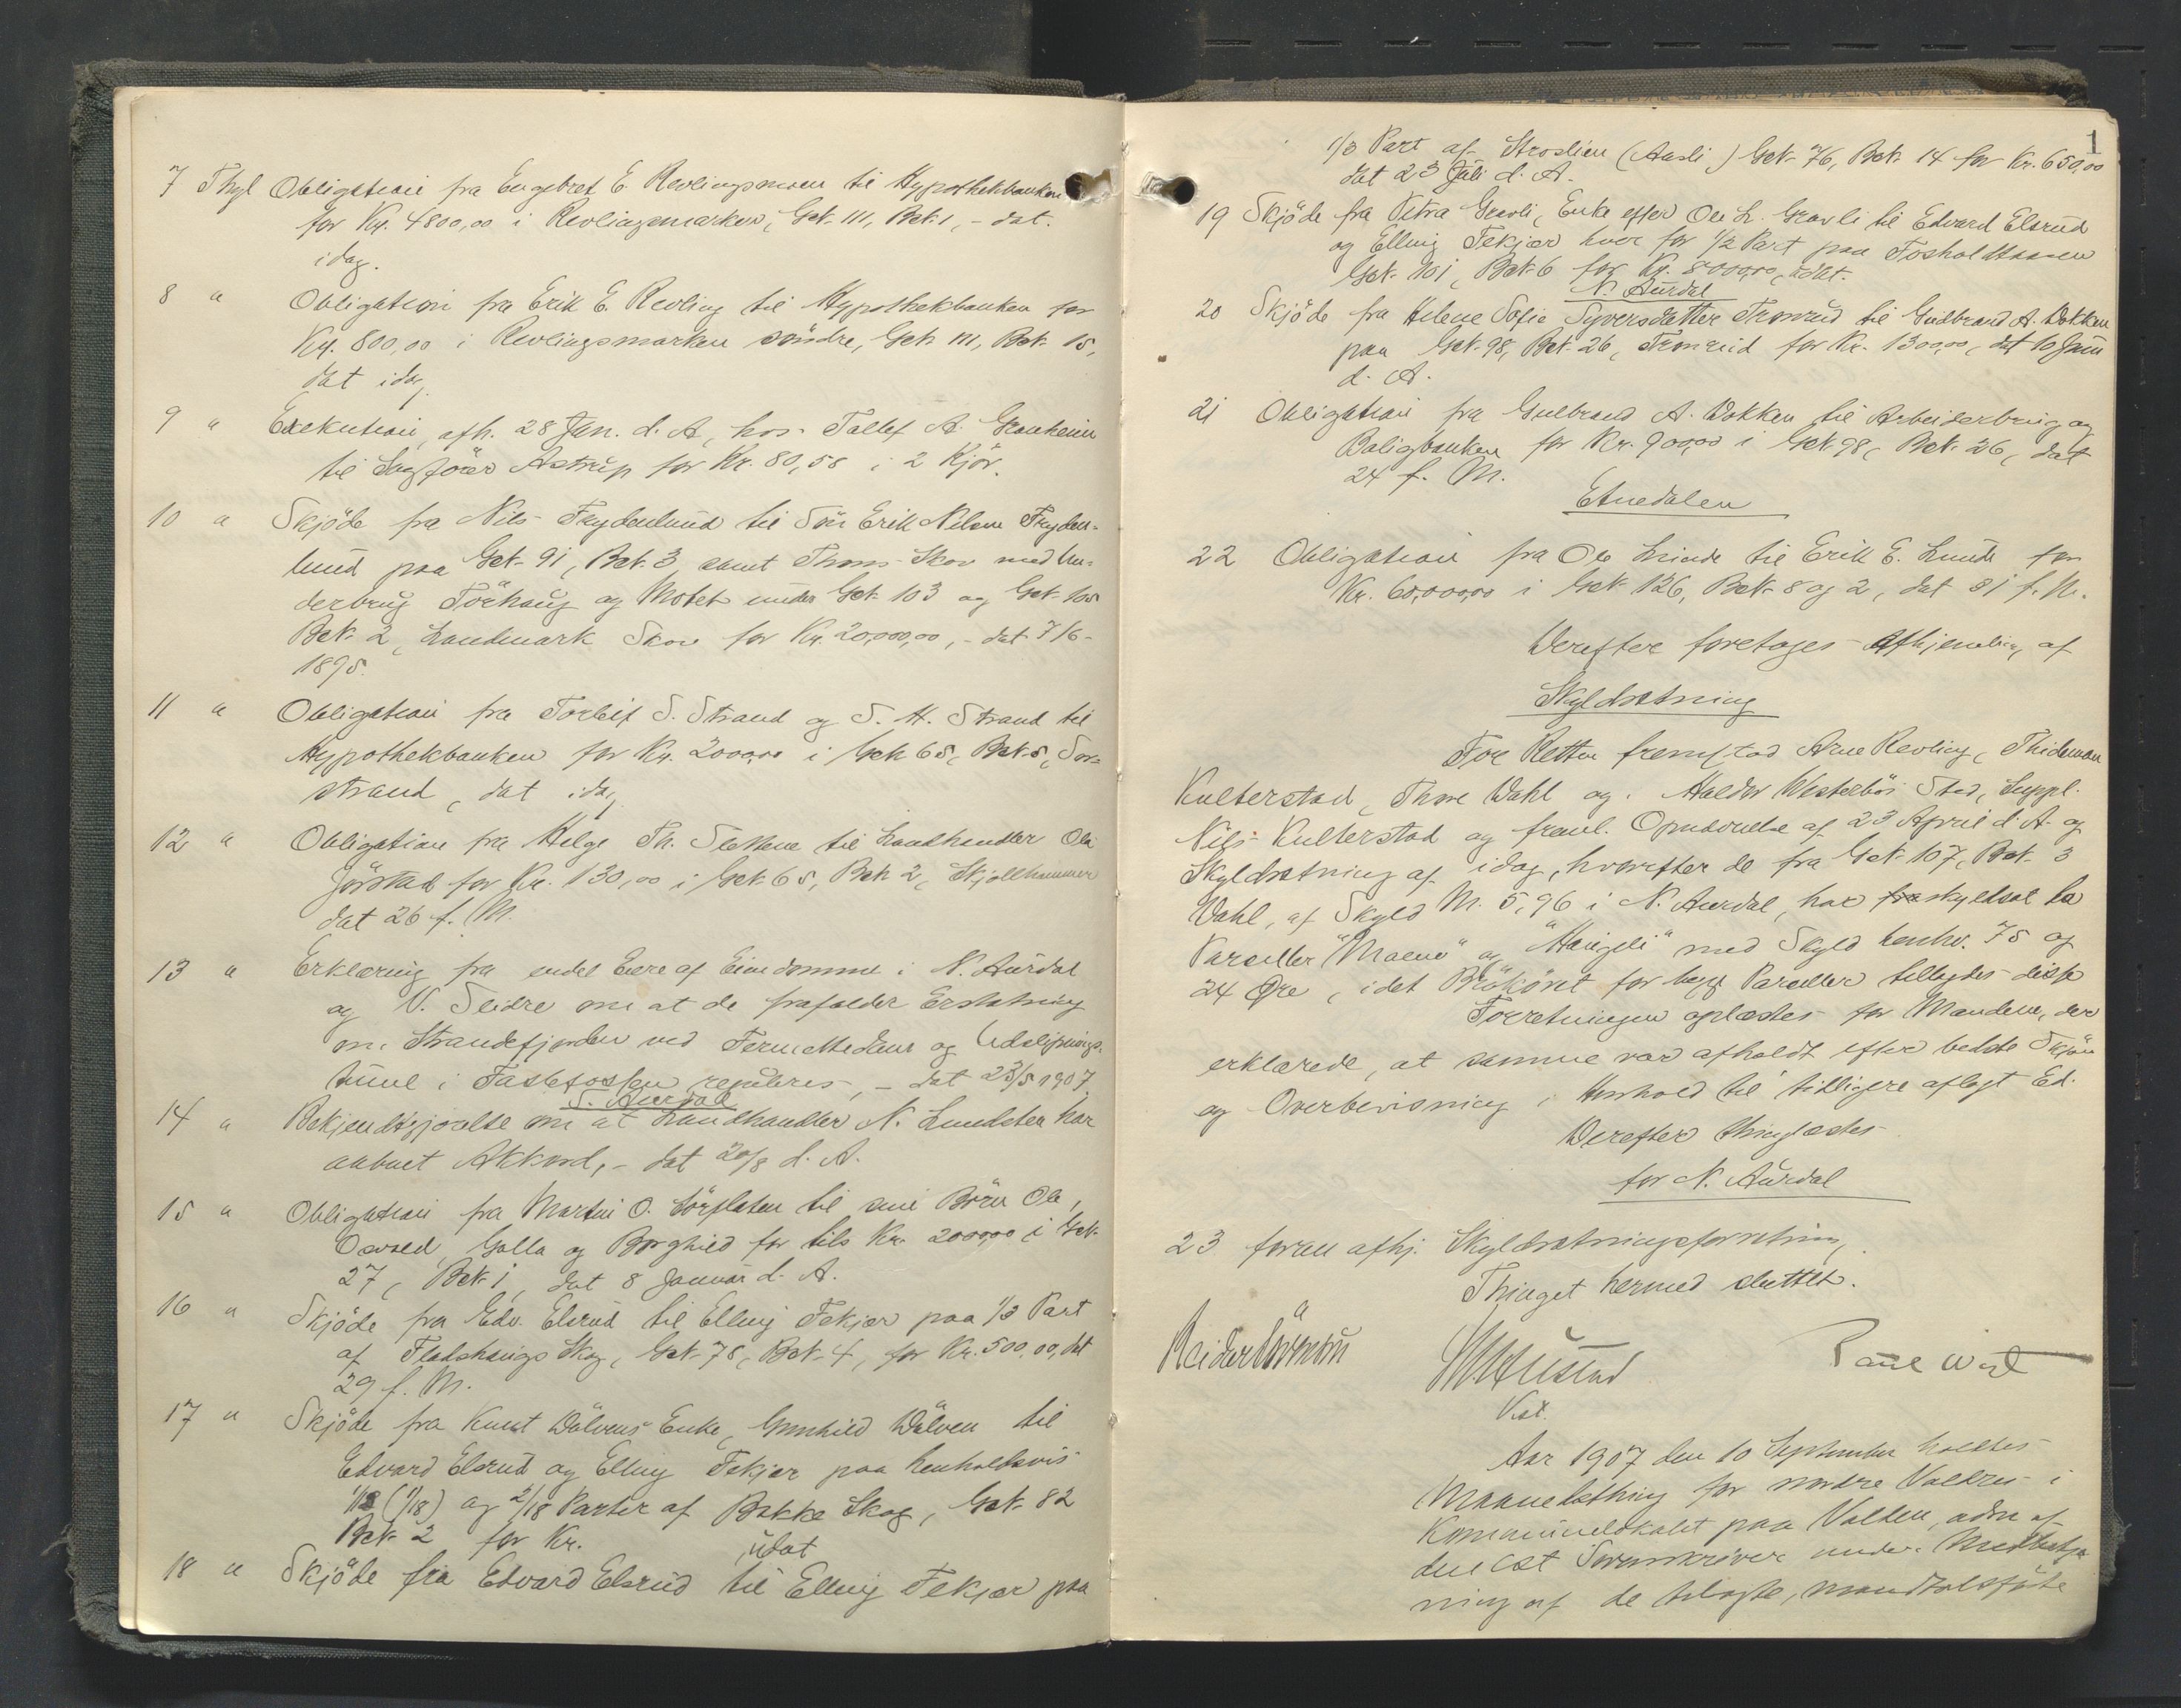 7 Thgl Obligation fra Engebret E. Revlingsmoen til Hypothekbanken
for Kr. 4800,00 i Revlingsmarken, Gek. 111, Bek. 1, - dat.
idag.
8 " Obligation fra Erik E. Revling til Hypothekbanken for
Kr. 800,00 i Revlingsmarken söndre, Gek. 111, Bek. 15,
dat idag,
9 " Exekution, afh. 28 Jan. d. A, hos Tollef A. Granheim
til Sagförer Astrup for Kr. 80,58 i 2 Kjör.
10 " Skjöde fra Nils Frydenlund til Sön Erik Nilsen Fryden-
lund paa Gek. 91, Bek. 3, samt Thons Skov med Un-
derbrug Törhaug og Motet under Gek. 103 og Gek. 105
Bek. 2, Landmark Skov for Kr. 20,000,00, - dat 7/6 -
1895.
11 " Obligation fra Torleif S. Strand og S. H. Strand til
Hypothekbanken for Kr. 2000,00 i Gek 65, Bek. 5, Sor-
strand, dat idag
12 " Obligation fra Helge Th. Slettene til Landhandler Ole
Jörstad for Kr. 130,00 i Gek. 65, Bek 2, Skjollhammer
dat 26 f. M.
13 " Erklæring fra endel Eiere af Eiendomme i N. Aurdal
og V. Slidre om at de frafalder Erstatning
om Strandefjorden ved Dam og
i Faslefossen reguleres, - dat 23/5 1907
S. Aurdal
14 " Bekjendtgjørelse om at Landhandler N. Lundsten har
aabnet Akkord, - dat 20/8 d. A.
15 " Obligation fra Martin O. til sine Börn Ole,
Galla og Borghild for tils Kr. 2000,00 i Gek.
27, Bek. 1, dat 8 Januar d. A.
16 " Skjöde fra Edv. Elsrud til Elling Fekjær paa 1/3 Part
af Fladshaugs Skog, Gek. 78, Bek. 4, for Kr. 500,00, dat
29 f. M.
17 " Skjöde fra Knut Wölvens Enke, Gunhild Wölven til
Edvard Elsrud og Elling Fekjær paa henholdsvis
1/18 (1/18) og 2/18 Parter af Bakke Skog, Gek. 82
Bek. 2 for Kr. , udat
18 " Skjöde fra Edvard Elsrud til Elling Fekjær paa
1
1/3 Part af Stroslien (Aasli) Gek. 76, Bek. 14 for Kr. 650,00
dat 23 Juli d. A.
19 Skjöde fra Petra Gravli, Enke efter Ole L. Gravli til Edvard Elsrud
og Elling Fekjær hver for 1/2 Part paa Fosholtaasen
Gek. 101, Bek. 6 for Kr. 8000,00, udat.
N. Aurdal
20 Skjöde fra Helene Sofie Syversdatter Tronrud til Gudbrand A. Dokken
paa Gek. 98, Bek. 26, Tronrud for Kr. 1300,00, dat 10 Juni
d. A.
21 Obligation fra Gulbrand A. Dokken til Arbeiderbrug og
Boligbanken for Kr. 900,00 i Gek. 98, Bek. 26, dat
24 f. M.
Etnedalen
22 Obligation fra Ole Lunde til Erik E. Lunde for
Kr. 60,000,00 i Gek. 126, Bek. 8 og 2, dat 31 f. M.
Derefter foretoges Afhjemling af
Skyldsætning
For Retten fremstod Arne Revling, Thideman
Kulterstad, Thore Wahl og Haldor Westerböi Sted, Suppl.
Nils Kulterstad og freml. Opnævnelse af 23 April d. A. og
Skyldsætning af idag, hvorefter de fra Gek. 107, Bek. 3
Vahl, af Skyld M. 5,96 i N. Aurdal, har fra skyldsat to
Parceller "Moene" og "Haugeli" med Skyld henhv. 75 og
24 Øre, idet for begge Parceller tillagdes disse
Forretningen oplæstes for Mændene, der
erklærede, at samme var afholdt efter bedste Skjön
og Overbevisning i Henhold til tidligere aflagt Ed.
Derefter thinglæstes
for N. Aurdal
23 foran afhj. Skyldsætningsforretning,
Thinget hermed sluttet.
Paul Wist
Vist.
Aar 1907 den 10 September holdtes
Maanedsthing for nordre Valdres i
Kommunelokalet paa Volden, adm af
den cst Sorenskriver under Medbetje
ning af de tilsagte, mandtalsførte